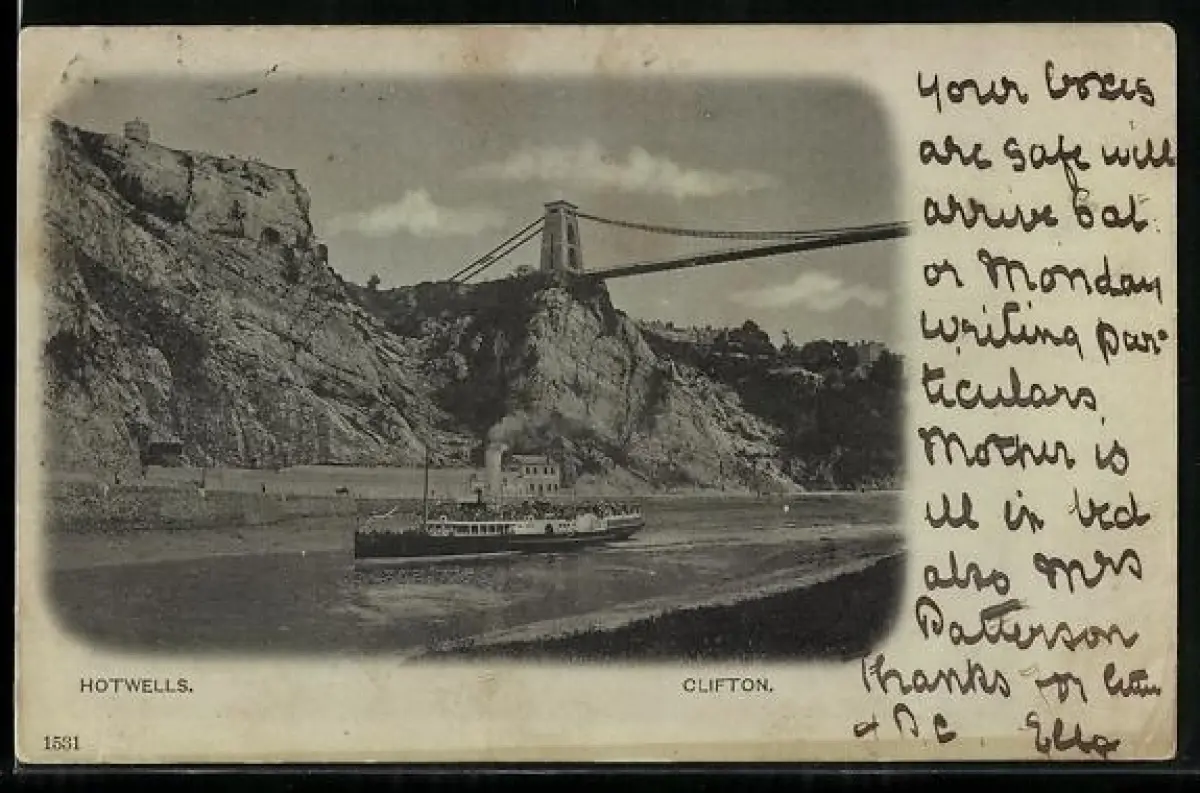 Your boxes
are safe will
arrive Sat.
or Monday
writing par-
ticulars.
Mother is
ill in bed
also Mrs
Patterson
thanks for letter
+ P.C. Ella
HOTWELLS.
CLIFTON.
1531